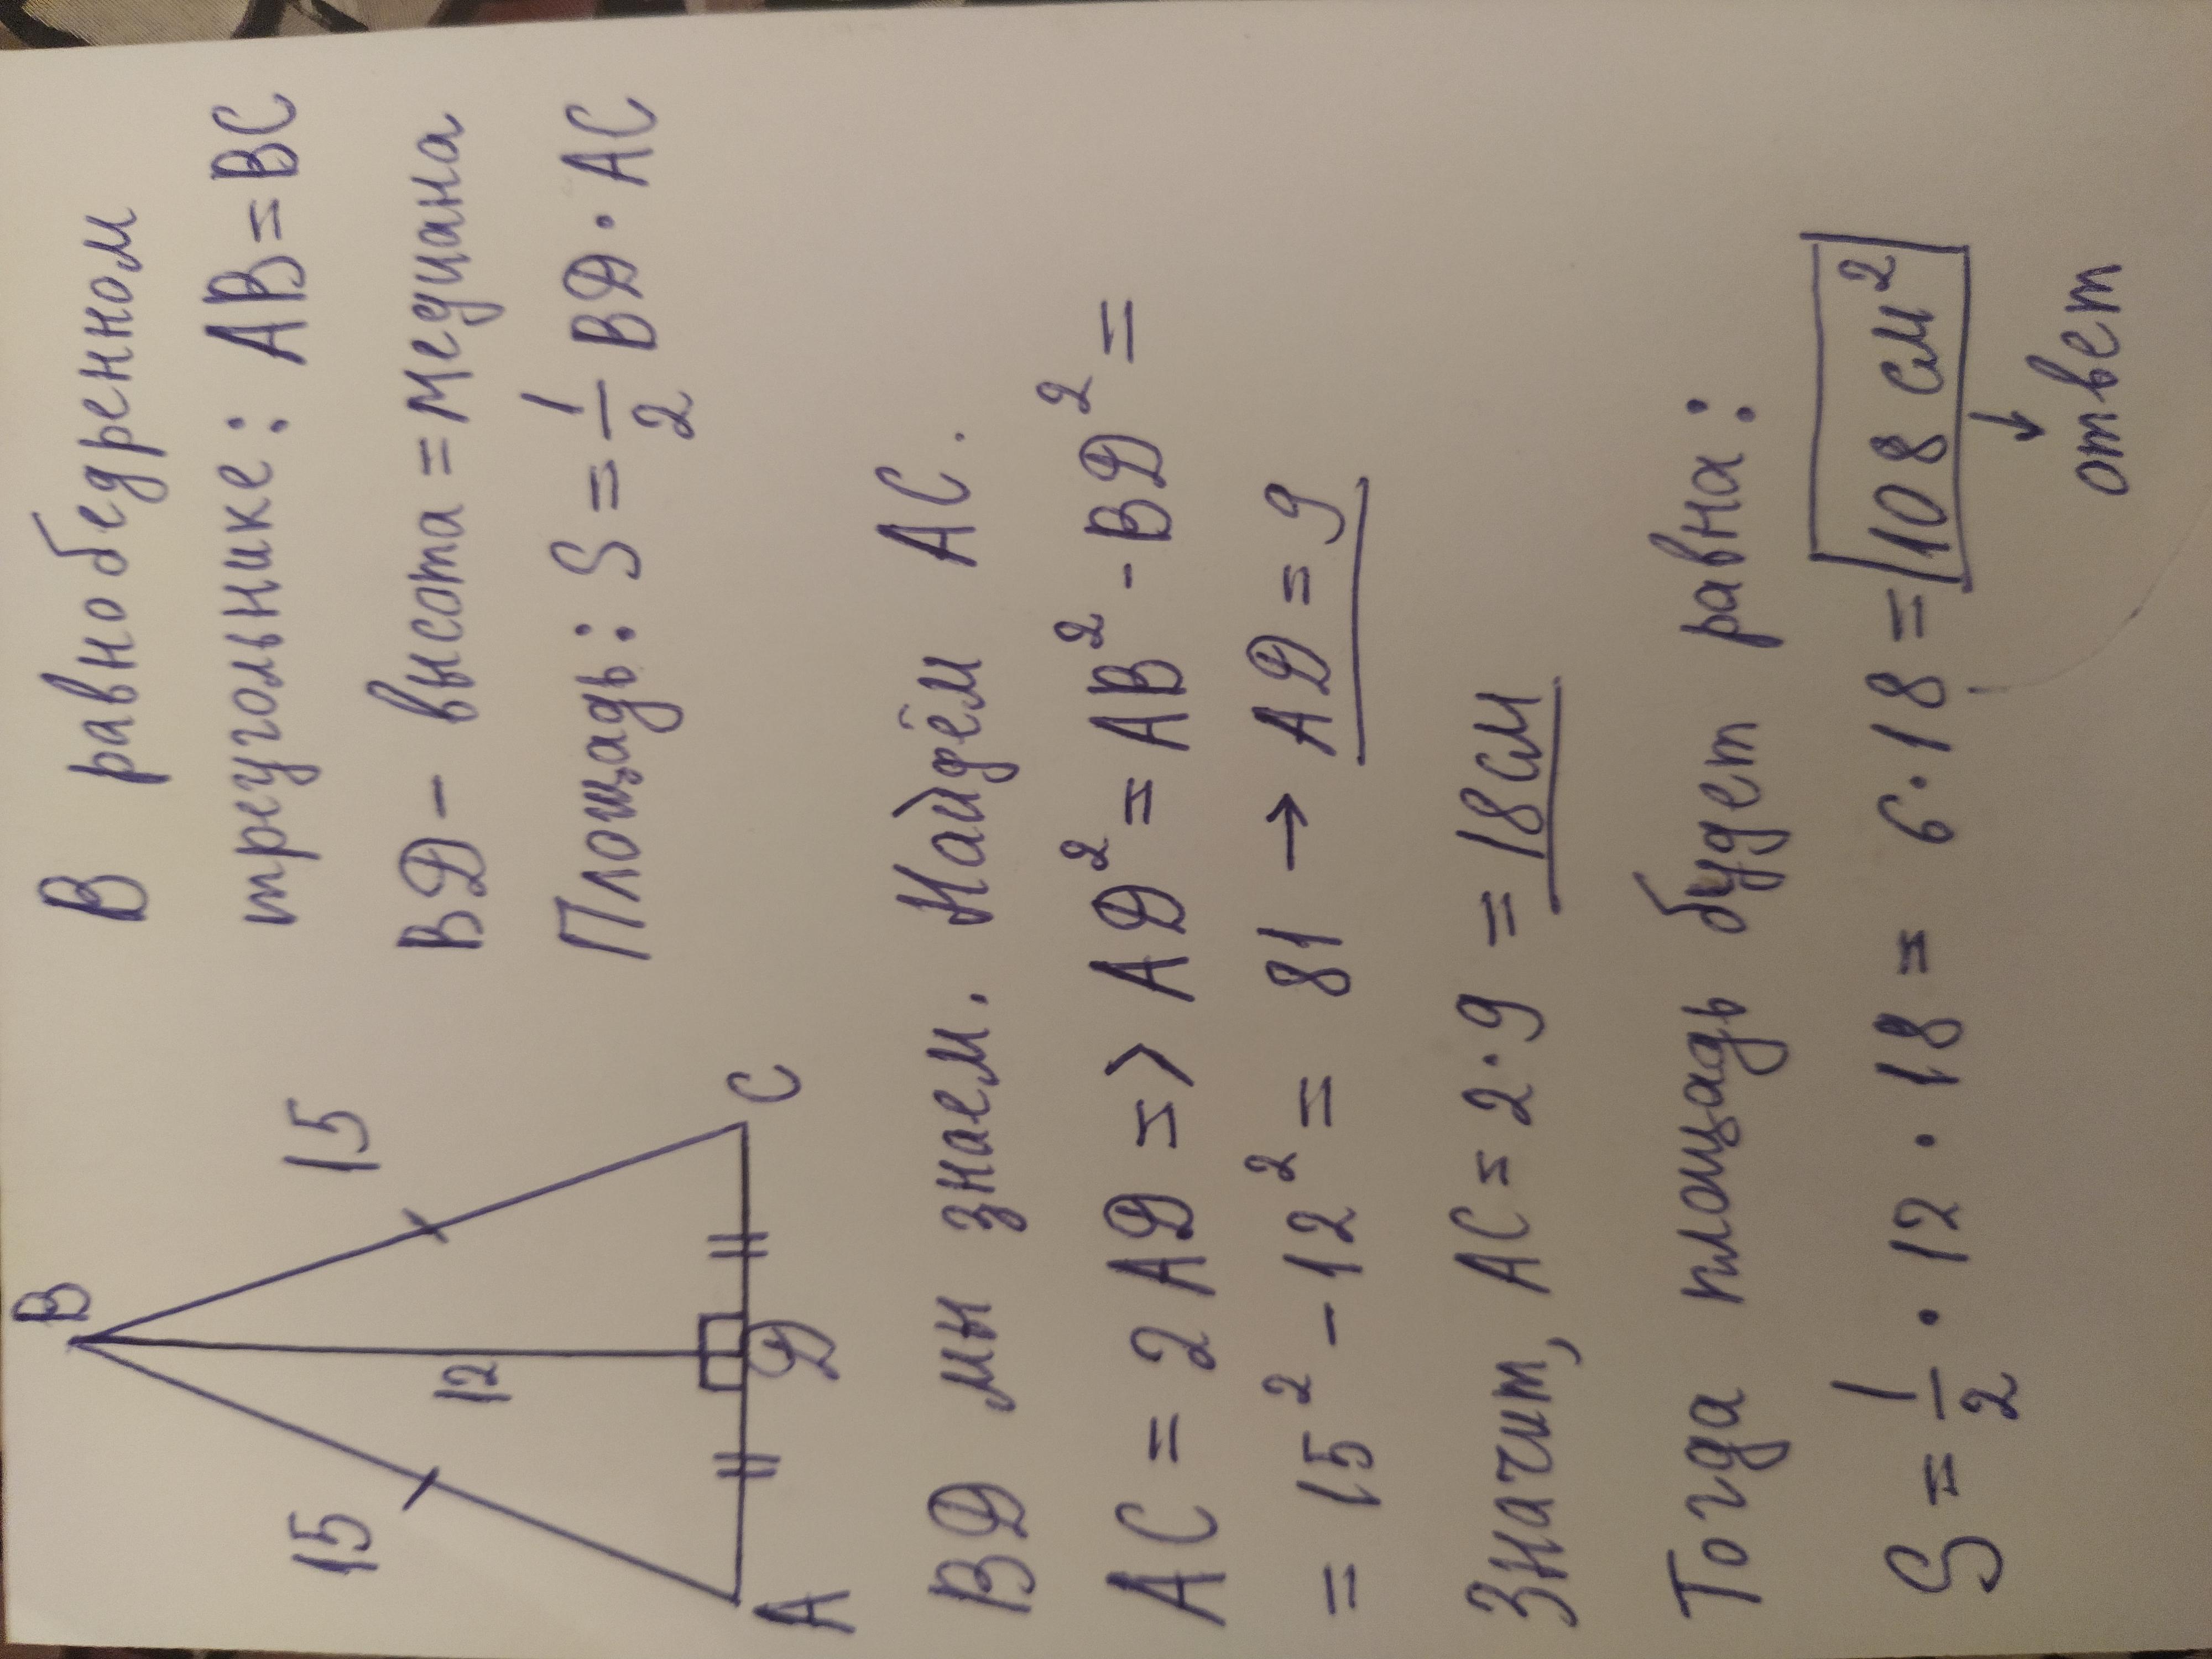 В равнобедренном
треугольнике: AB=BC
BD - высота = медиана
Площадь: S = 1/2 BD · AC
B
15
15
12
A
D
C
BD мы знаем. Найдём AC.
AC = 2AD => AD² = AB² - BD² =
= 15² - 12² = 81 → AD = 9
Значит, AC = 2·9 = 18см
Тогда площадь будет равна:
S = 1/2 · 12 · 18 = 6·18 = 108 см²
↓
ответ